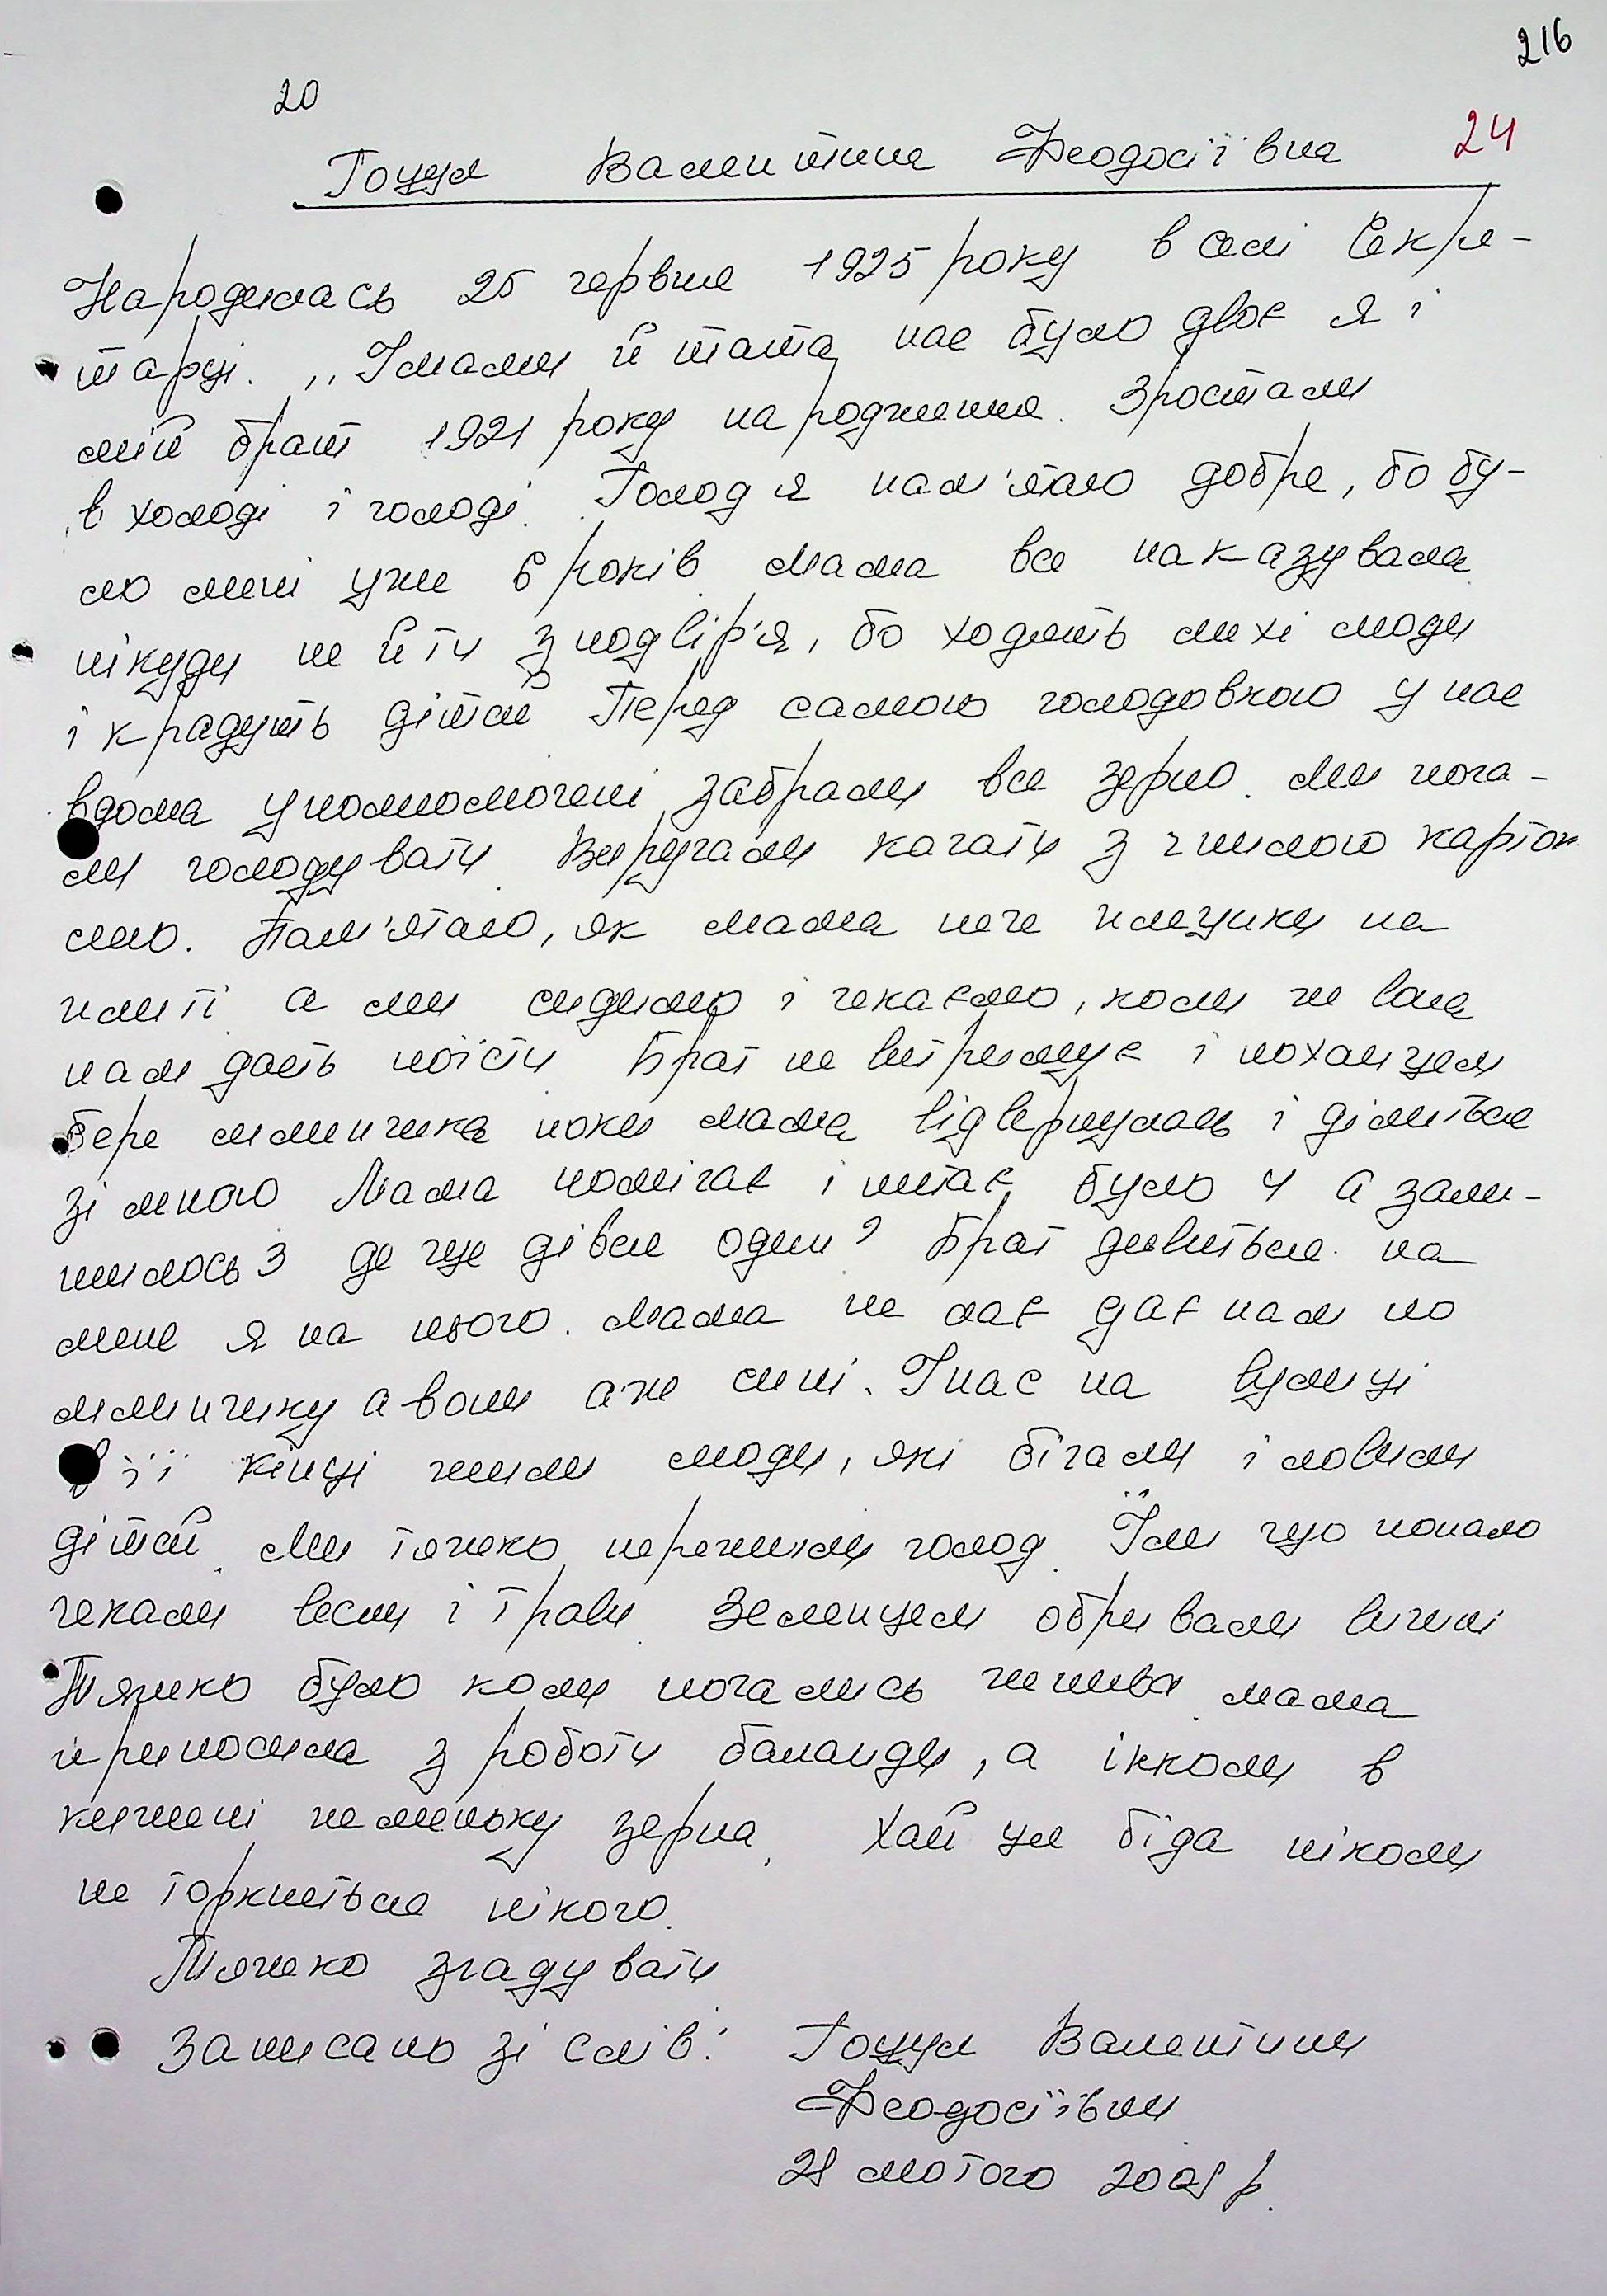 216
20
24
Гоцул Валентина Феодосіївна
Народилась 25 червня 1925 року в селі Секре-
тарці. „І мами й тата нас було двоє я і
мій брат 1921 року народження. Зростали
в холоді і голоді. Голод я пам'ятаю добре, бо бу-
ло мені уже 6 років. Мама все наказувала
нікуди не йти з подвір'я, бо ходять лихі люди
і крадуть дітей Перед самою голодовкою у нас
вдома уполномочені забрали все зерно. Ми поча-
ли голодувати. Виручали качати з гнилою картоп
лею. Пам'ятаю, як мама пече пляцики на
плиті а ми сидимо і чекаємо, коли же вона
нам дасть поїсти Брат не витримує і похапцем
бере млинчика поки мама відвернулась і ділиться
зі мною Мама помічає і питає було 4 а зали-
шилось 3 де ще дівся один? Брат дивиться на
мене я на нього. Мама не лає дає нам по
млинчику а вони аже сині. І нас на вулиці
в її кінці жили люди, які бігали і ловили
дітей. Ми тяжко пережили голод. Їли що попало
чекали весни і трави. Зеленцем обривали вишні
Тяжко було коли почались жнива мама
приносила з роботи баланди, а інколи в
кишені жменьку зерна. Хай ця біда ніколи
не торкнеться нікого.
Тяжко згадувати
Записано зі слів: Гоцул Валентини
Феодосіївни
28 лютого 2008 р.